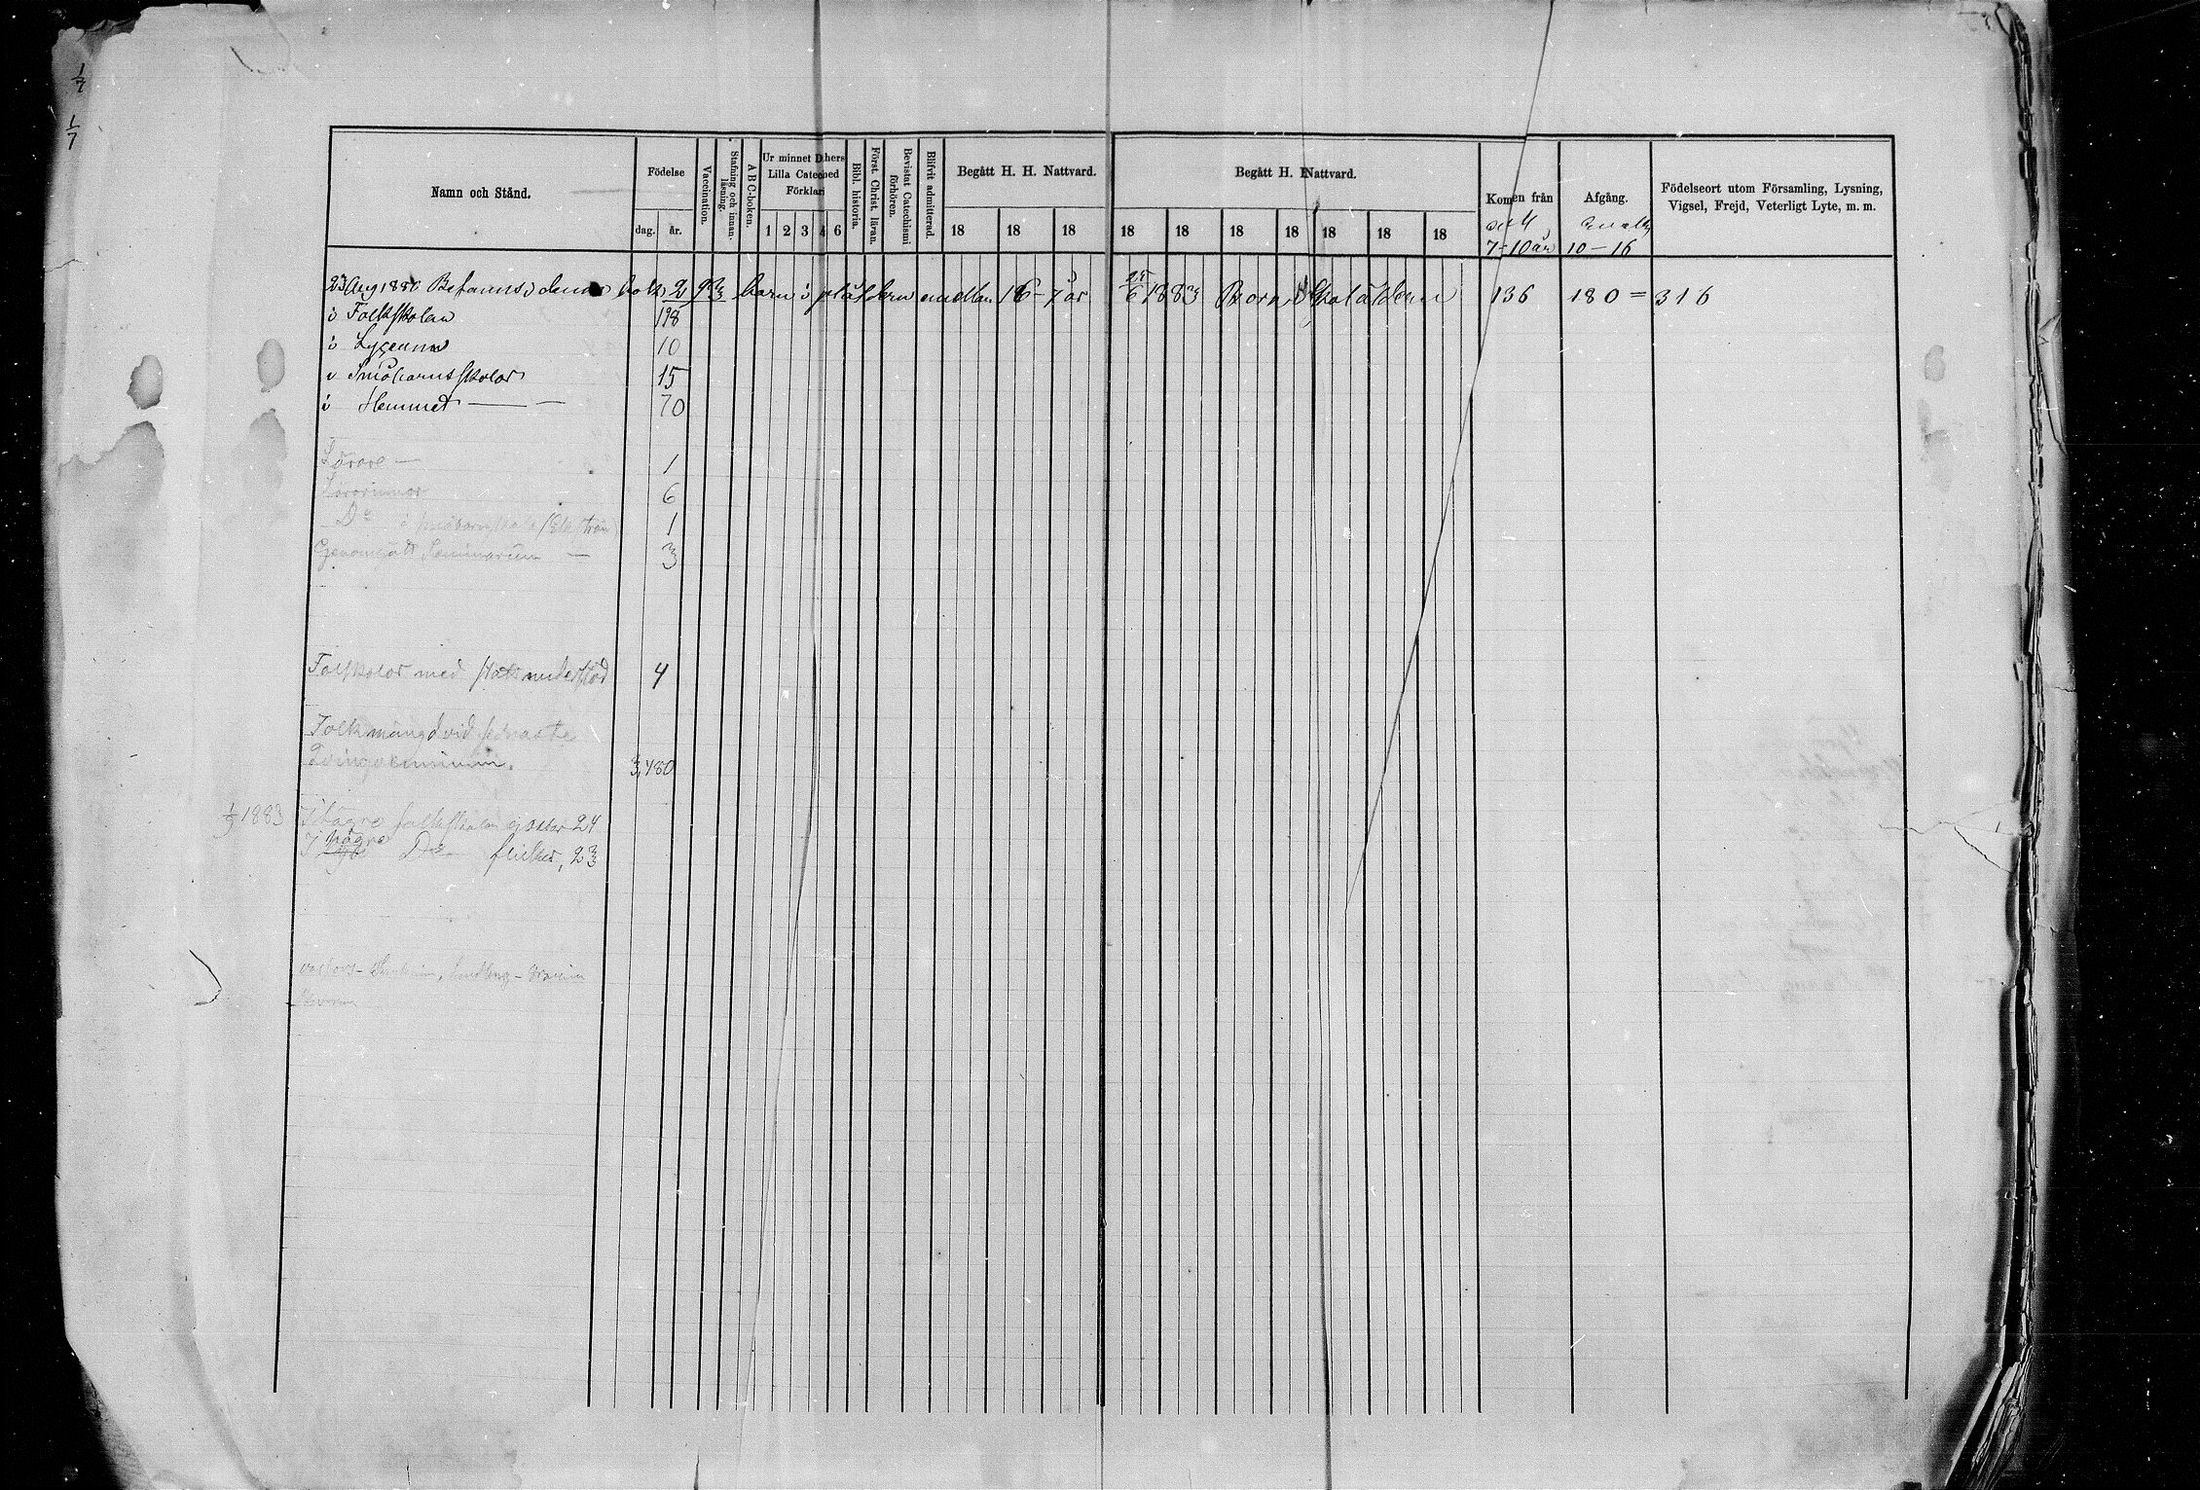 1/7
1/7
Namn och Stånd.
Födelse
dag.
år.
Vaccination.
Stafning och innan-läsning.
ABC-boken.
Ur minnet D:hers
Lilla Cateched
Förklari
1 2 3 4 6
Bibl. historia.
Först. Christ. läran.
Bevistat Catechismi förhören.
Blifvit admitterad.
Begått H. H. Nattvard.
18 18 18
Begått H. Nattvard.
18 18 18 18 18 18 18
Kommen från
7-10 år
Afgång.
10-16
Födelseort utom Församling, Lysning,
Vigsel, Frejd, Veterligt Lyte, m. m.
23 Aug 1880 Befanns i denna bok 293 barn i åldern mellan 16-7 år
25/6 1883 Barn i Skolåldern 136 180 = 316
i Folkskolan 198
i Lyceum 10
i Småbarnsskolor 15
i Hemmet 70
Lärare 1
Lärarinnor 6
Do i småbarnskola 1
Genomgått Seminarium 3
Folkskolor med statsunderstöd 4
Folkmängd vid senaste
3,480
1/9 1883 I högre folkskolan gossar 24
I högre Do flickor, 23